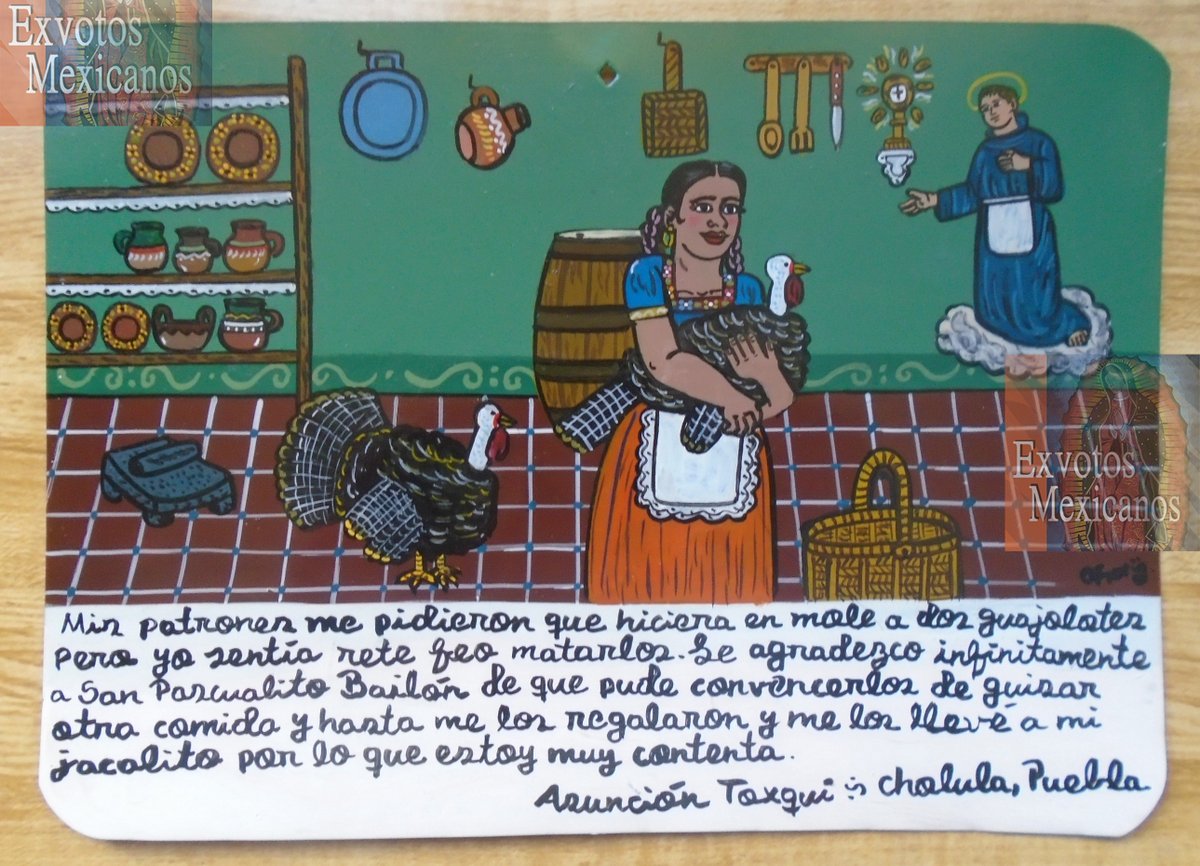 Exvotos
Mexicanos
Exvotos
Mexicanos
Mis patrones me pidieron que hiciera en mole a dos guajolotes
pero yo sentía rete feo matarlos. Le agradezco infinitamente
a San Pascualito Bailón de que pude convencerlos de guisar
otra comida y hasta me los regalaron y me los llevé a mi
jacalito por lo que estoy muy contenta.
Asunción Toxqui Cholula, Puebla